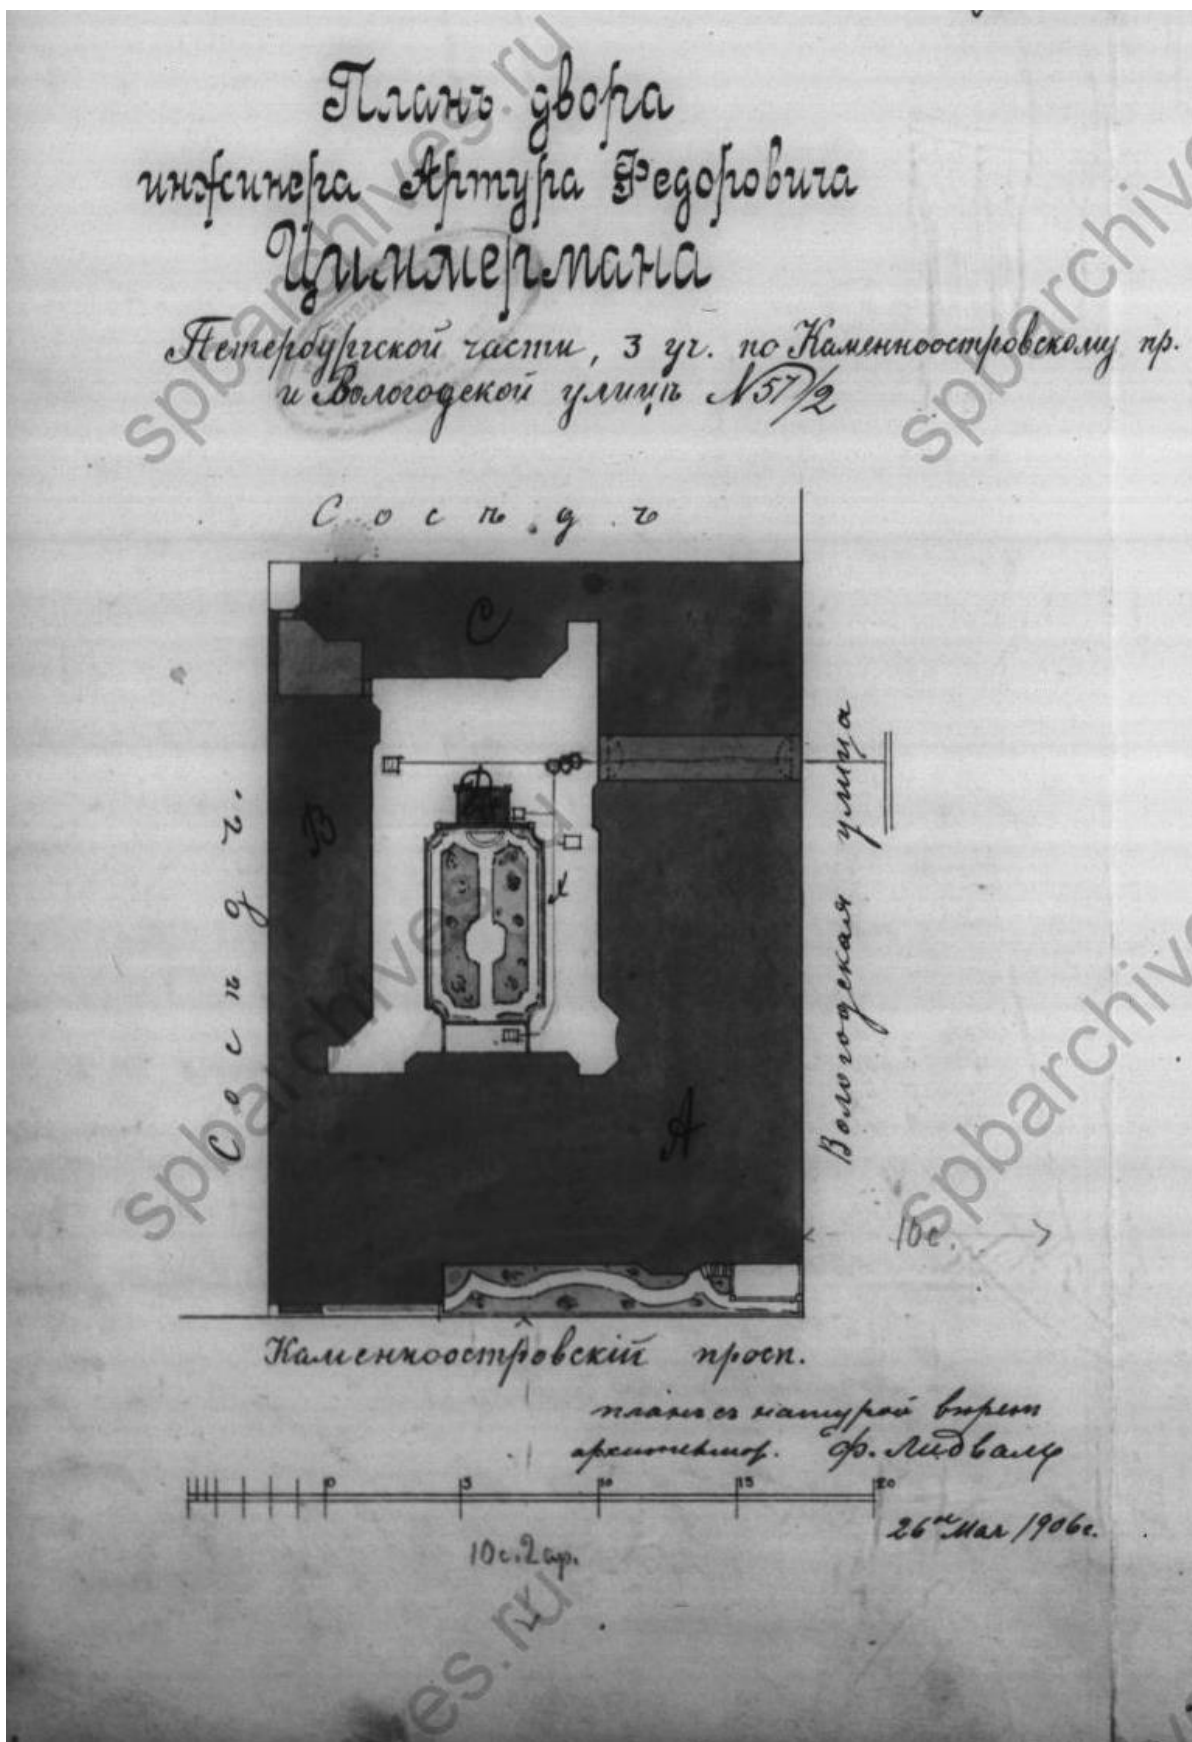 Планъ двора
инжинера Артура Федоровича
Циммермана
Петербургской части, 3 уч. по Каменноостровскому пр.
и Вологодской улицѣ N57/2
Сосѣдъ
С
В
Ф
К
А
Сосѣдъ.
Вологодская улица
10с.
Каменноостровскiй просп.
планъ съ натурой вѣренъ
архитектор. Ф. Лидваль
0 5 10 15 20
26го Мая 1906г.
10с. 2ар.
spbarchives.ru